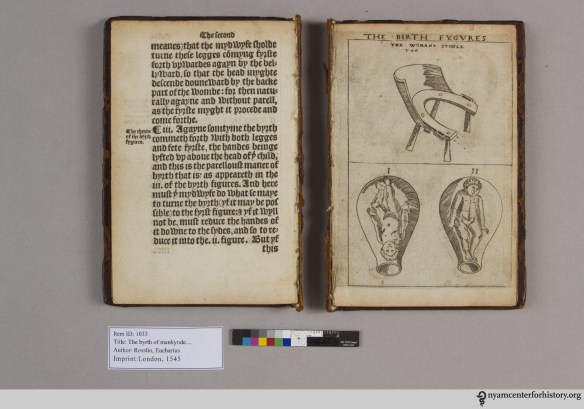 The second
meanes: that the mydwyfe sholde
turne these legges cõmyng fyrste
forth vpwardes agayn by the bel-
lyward, so that the head myghte
descende douneward by the backe
part of the wombe: for then natu-
rally agayne and without parell,
as the fyrste myght it procede and
come forthe.
The thyrde
of the birth
fygures.
iii. Agayne somtyme the byrth
commeth forth with both legges
and fete fyrste, the handes beinge
lyfted vp aboue the head of yͤ child,
and this is the parellous maner of
byrth that is: as appeareth in the
iii. of the byrth figures. And here
must yͤ mydwyfe do what se maye
to turne the byrth (yf it may be pos
sible) to the fyrst figure: & yf it wyll
not be, must reduce the handes of
it downe to the sydes, and so to re-
duce it into the. ii. figure. But yf
this
THE BIRTH FYGVRES
THE WOMANS STOOLE
I
II
Item ID: 1033
Title: The byrth of mankynde...
Author: Rosslin, Eucharius
Imprint: London, 1545
nyamcenterforhistory.org